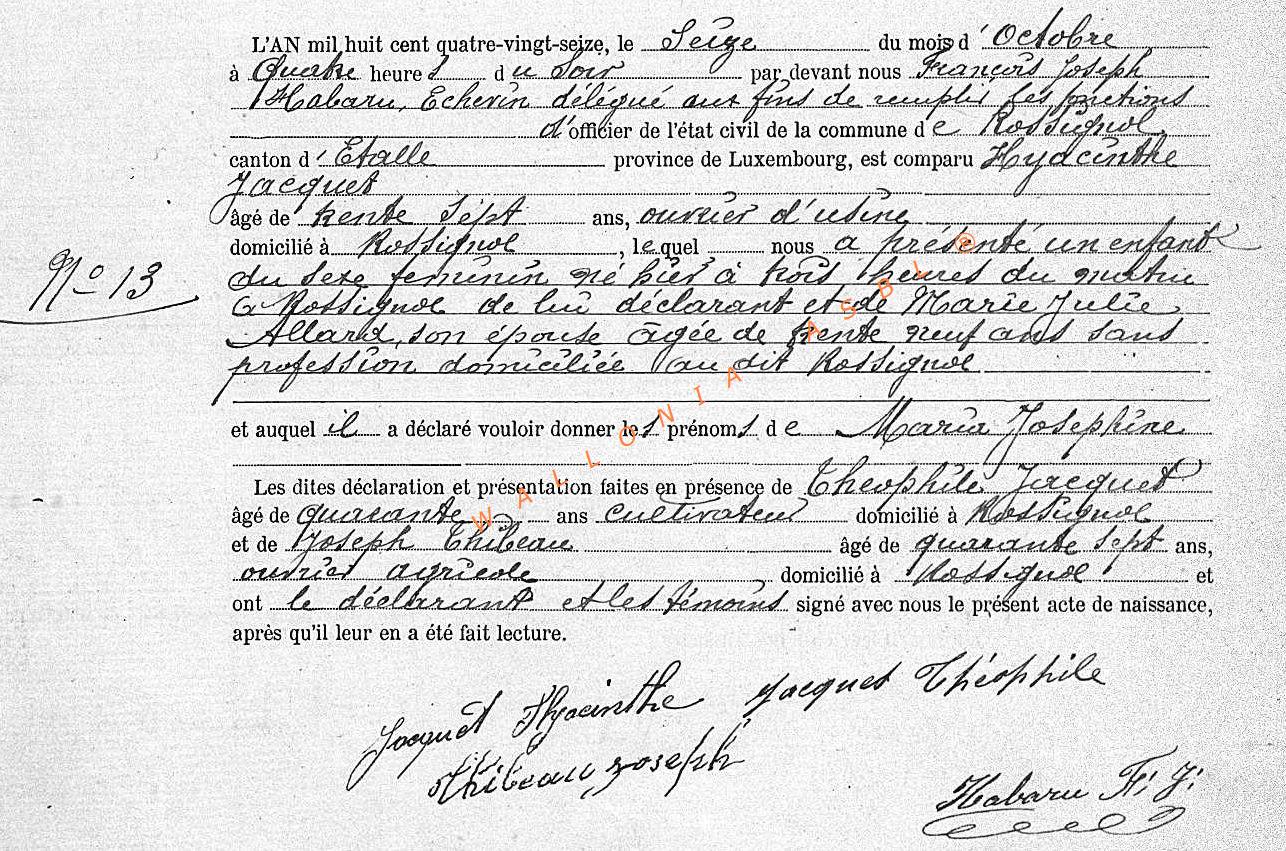 L'AN mil huit cent quatre-vingt-seize, le Seize du mois d' Octobre
à Quatre heures du Soir par devant nous François Joseph
Habaru, Echevin délégué aux fins de remplir les fonctions
d'officier de l'état civil de la commune de Rossignol,
canton d'Etalle province de Luxembourg, est comparu Hyacinthe
Jacquet
âgé de trente Sept ans, ouvrier d'usine
domicilié à Rossignol, lequel nous a présenté un enfant
N° 13
du sexe feminin né hier à trois heures du matin
à Rossignol de lui déclarant et de Marie Julie
Allard, son épouse âgée de trente neuf ans sans
profession domiciliée au dit Rossignol
et auquel il a déclaré vouloir donner les prénoms de Maria Josephine
Les dites déclaration et présentation faites en présence de Théophile Jacquet
âgé de quarante ans cultivateur domicilié à Rossignol
et de Joseph Thibeau âgé de quarante sept ans,
ouvrier agricole domicilié à Rossignol et
ont le déclarant et les témoins signé avec nous le présent acte de naissance,
après qu'il leur en a été fait lecture.
Jacquet Hyacinthe Jacquet Théophile
Thibeau Joseph
Habaru F. J.
WALLONIA ASBL ®